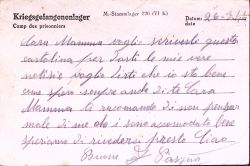 Kriegsgefangenenlager
M.-Stammlager 326 (VI k.)
Camp des prisonniers
Datum:
date
26-3-
Cara Mamma voglio scriverti questa
cartolina per farti le mie vere
notizie voglio dirti che io sto bene
come spero sempre anche di te Cara
Mamma ti racomando di non pensar
male di me do i sono acomodato bene
speriamo di rivederci presto Ciao
Buone